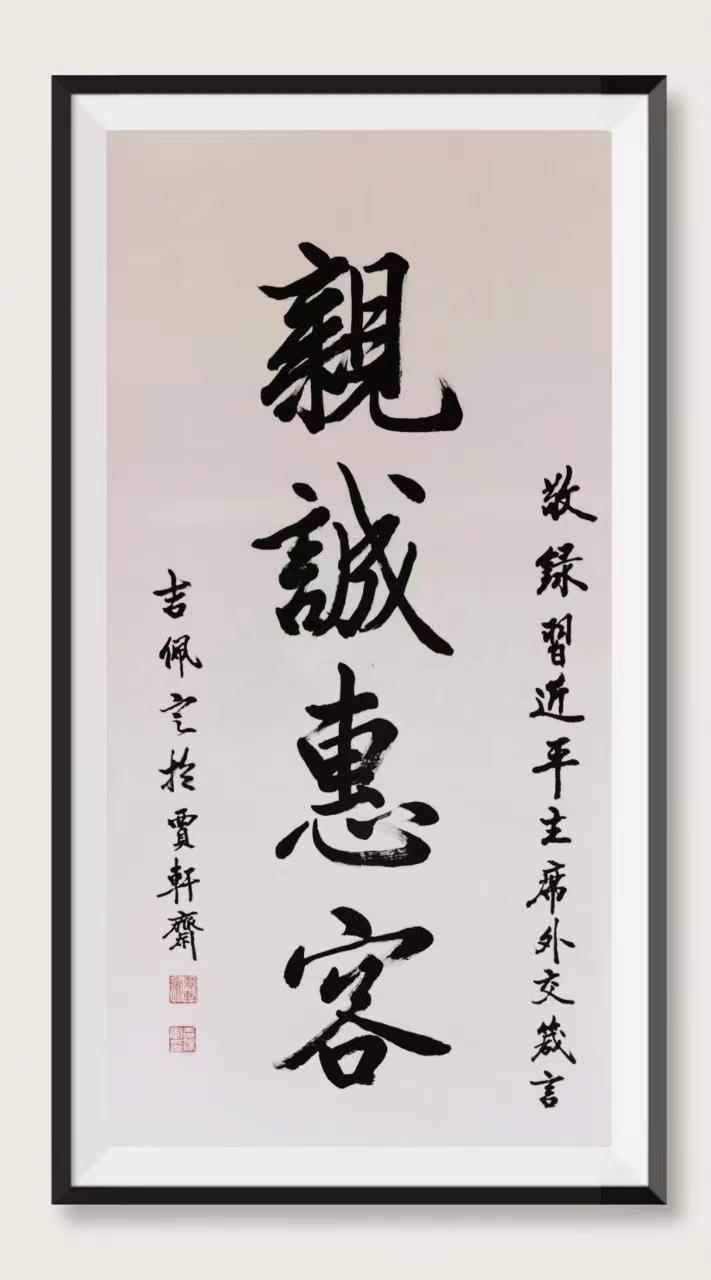 敬録習近平主席外交箴言
親誠惠客
吉佩定於賈軒齋